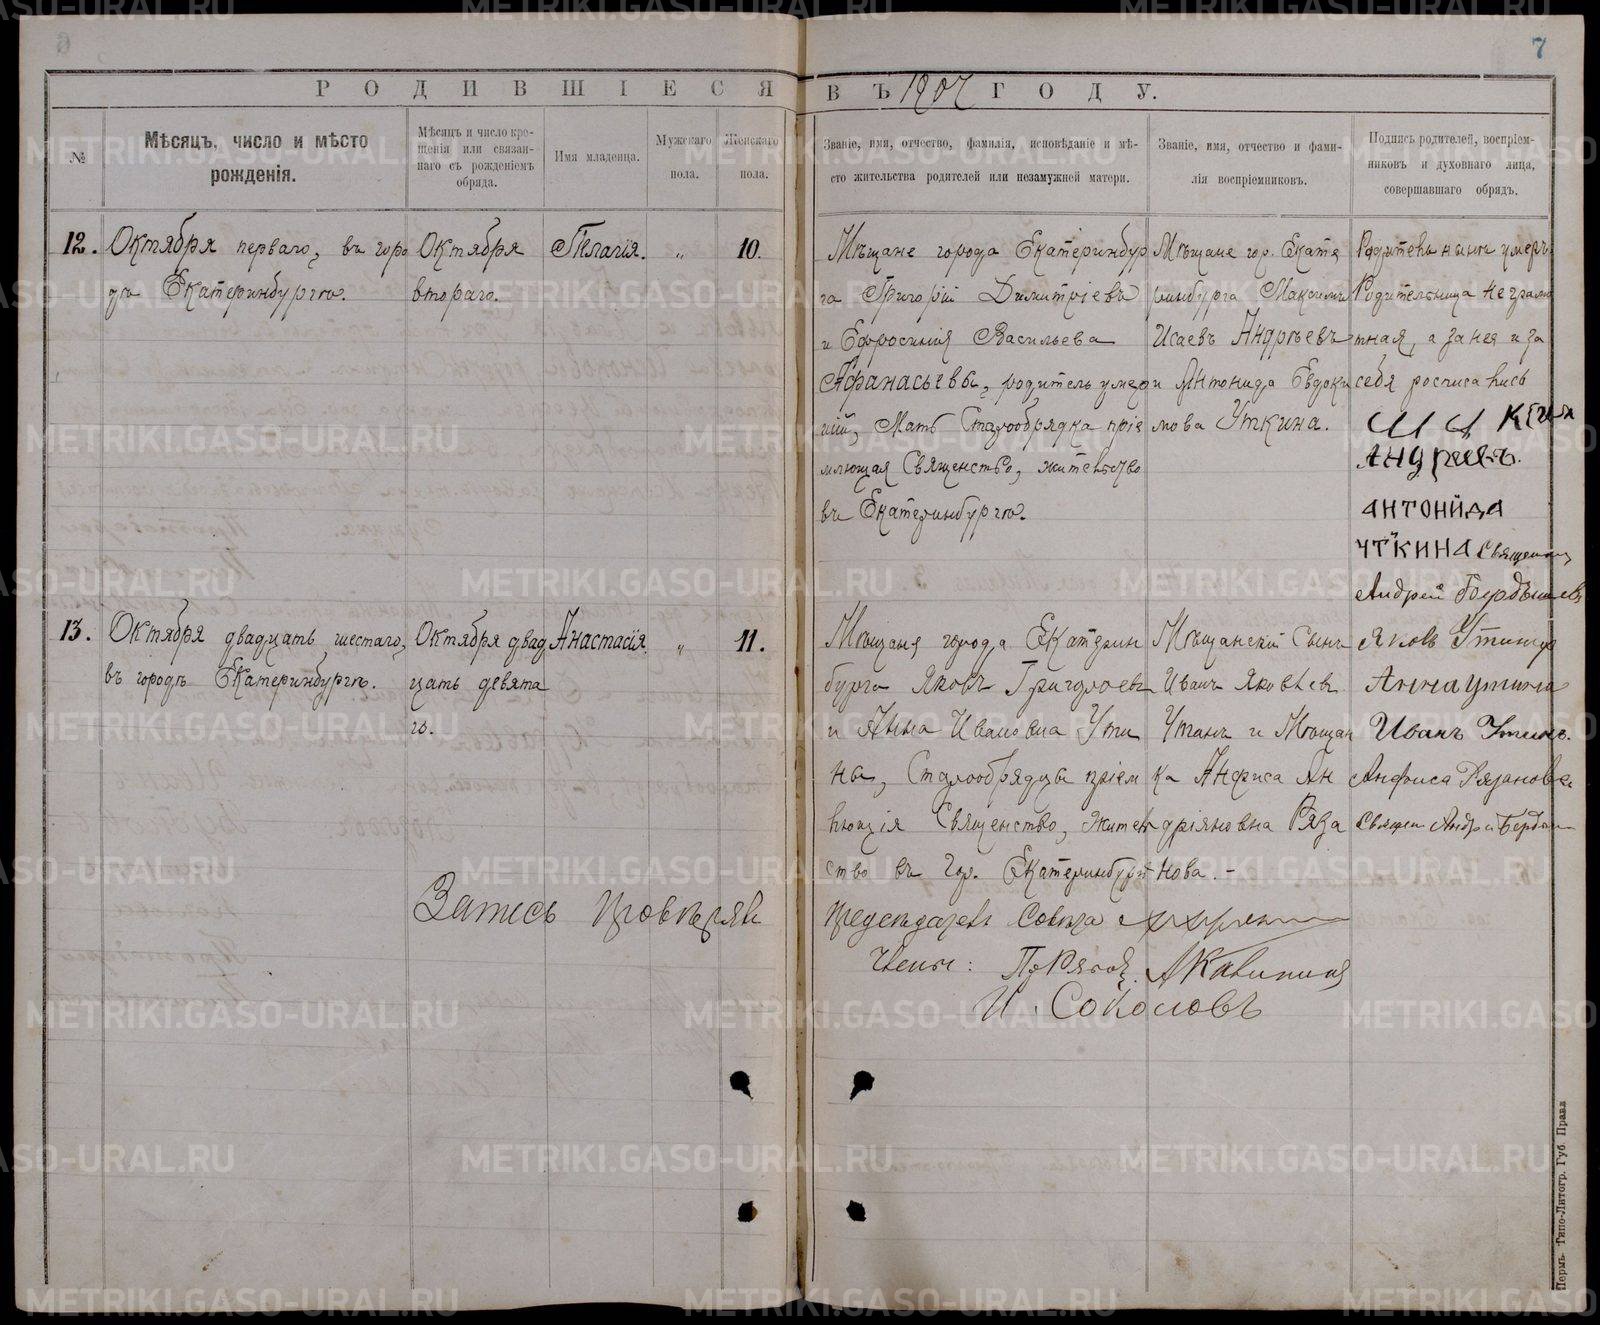 7
РОДИВШІЕСЯ
ВЪ 1907 ГОДУ.
№
Мѣсяцъ, число и мѣсто
рожденія.
Мѣсяцъ и число кре-
щенія или связан-
наго съ рожденіемъ
обряда.
Имя младенца.
Мужскаго
пола.
Женскаго
пола.
Званіе, имя, отчество, фамилія, исповѣданіе и мѣ-
сто жительства родителей или незамужней матери.
Званіе, имя, отчество и фами-
лія воспріемниковъ.
Подпись родителей, воспріем-
никовъ и духовнаго лица,
совершавшаго обрядъ.
12.
Октября перваго, въ горо
дѣ Екатеринбургѣ.
Октября
втораго.
Пелагія.
„
10.
Мѣщане города Екатеринбур
га Григорій Димитріевъ
и Ефросинія Васильева
Афанасьевы, родитель умер
шій, Мать Старообрядка пріе
млющая Священство, жительство
въ Екатеринбургѣ.
Мѣщане гор. Екате
ринбурга Максимъ
Исаевъ Андреевъ
и Антонида Евдоки
мова Уткина.
Родитель нынѣ умеръ
Родительница неграмо
тная, а за нея и за
себя росписались
АНДРЕЕВЪ.
АНТОНИДА
УТКИНА Священник
Андрей
13.
Октября двадцать шестаго,
въ городѣ Екатеринбургѣ.
Октября двад
цать девята
го.
Анастасія.
„
11.
Мѣщане города Екатерин
бурга Яковъ Григорьевъ
и Анна Ивановна Ути
ны, Старообрядцы пріем
лющія Священство, житель
ство въ гор. Екатеринбургѣ
Мѣщанскій Сынъ
Иванъ Яковлевъ
Утинъ и Мѣщан
ка Анфиса Ан
дріяновна Ряза
нова. –
Яковъ Утинъ
Анна Утина
Иванъ Утинъ.
Анфиса Рязанова
Священ Андрей
Запись провѣряли
Предсѣдатель Совѣта
Члены:
И. Соколовъ
Пермь. Типо-Литогр. Губ. Правл
METRIKI.GASO-URAL.RU